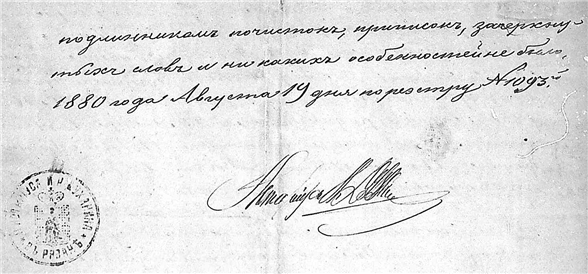 подлинникамъ почистокъ, приписокъ, зачеркну-
тыхъ словъ и ни какихъ особенностей не было,
1880 года Августа 19 дня по реэстру № 1093.
Нотаріусъ
РЯЗАНѢ